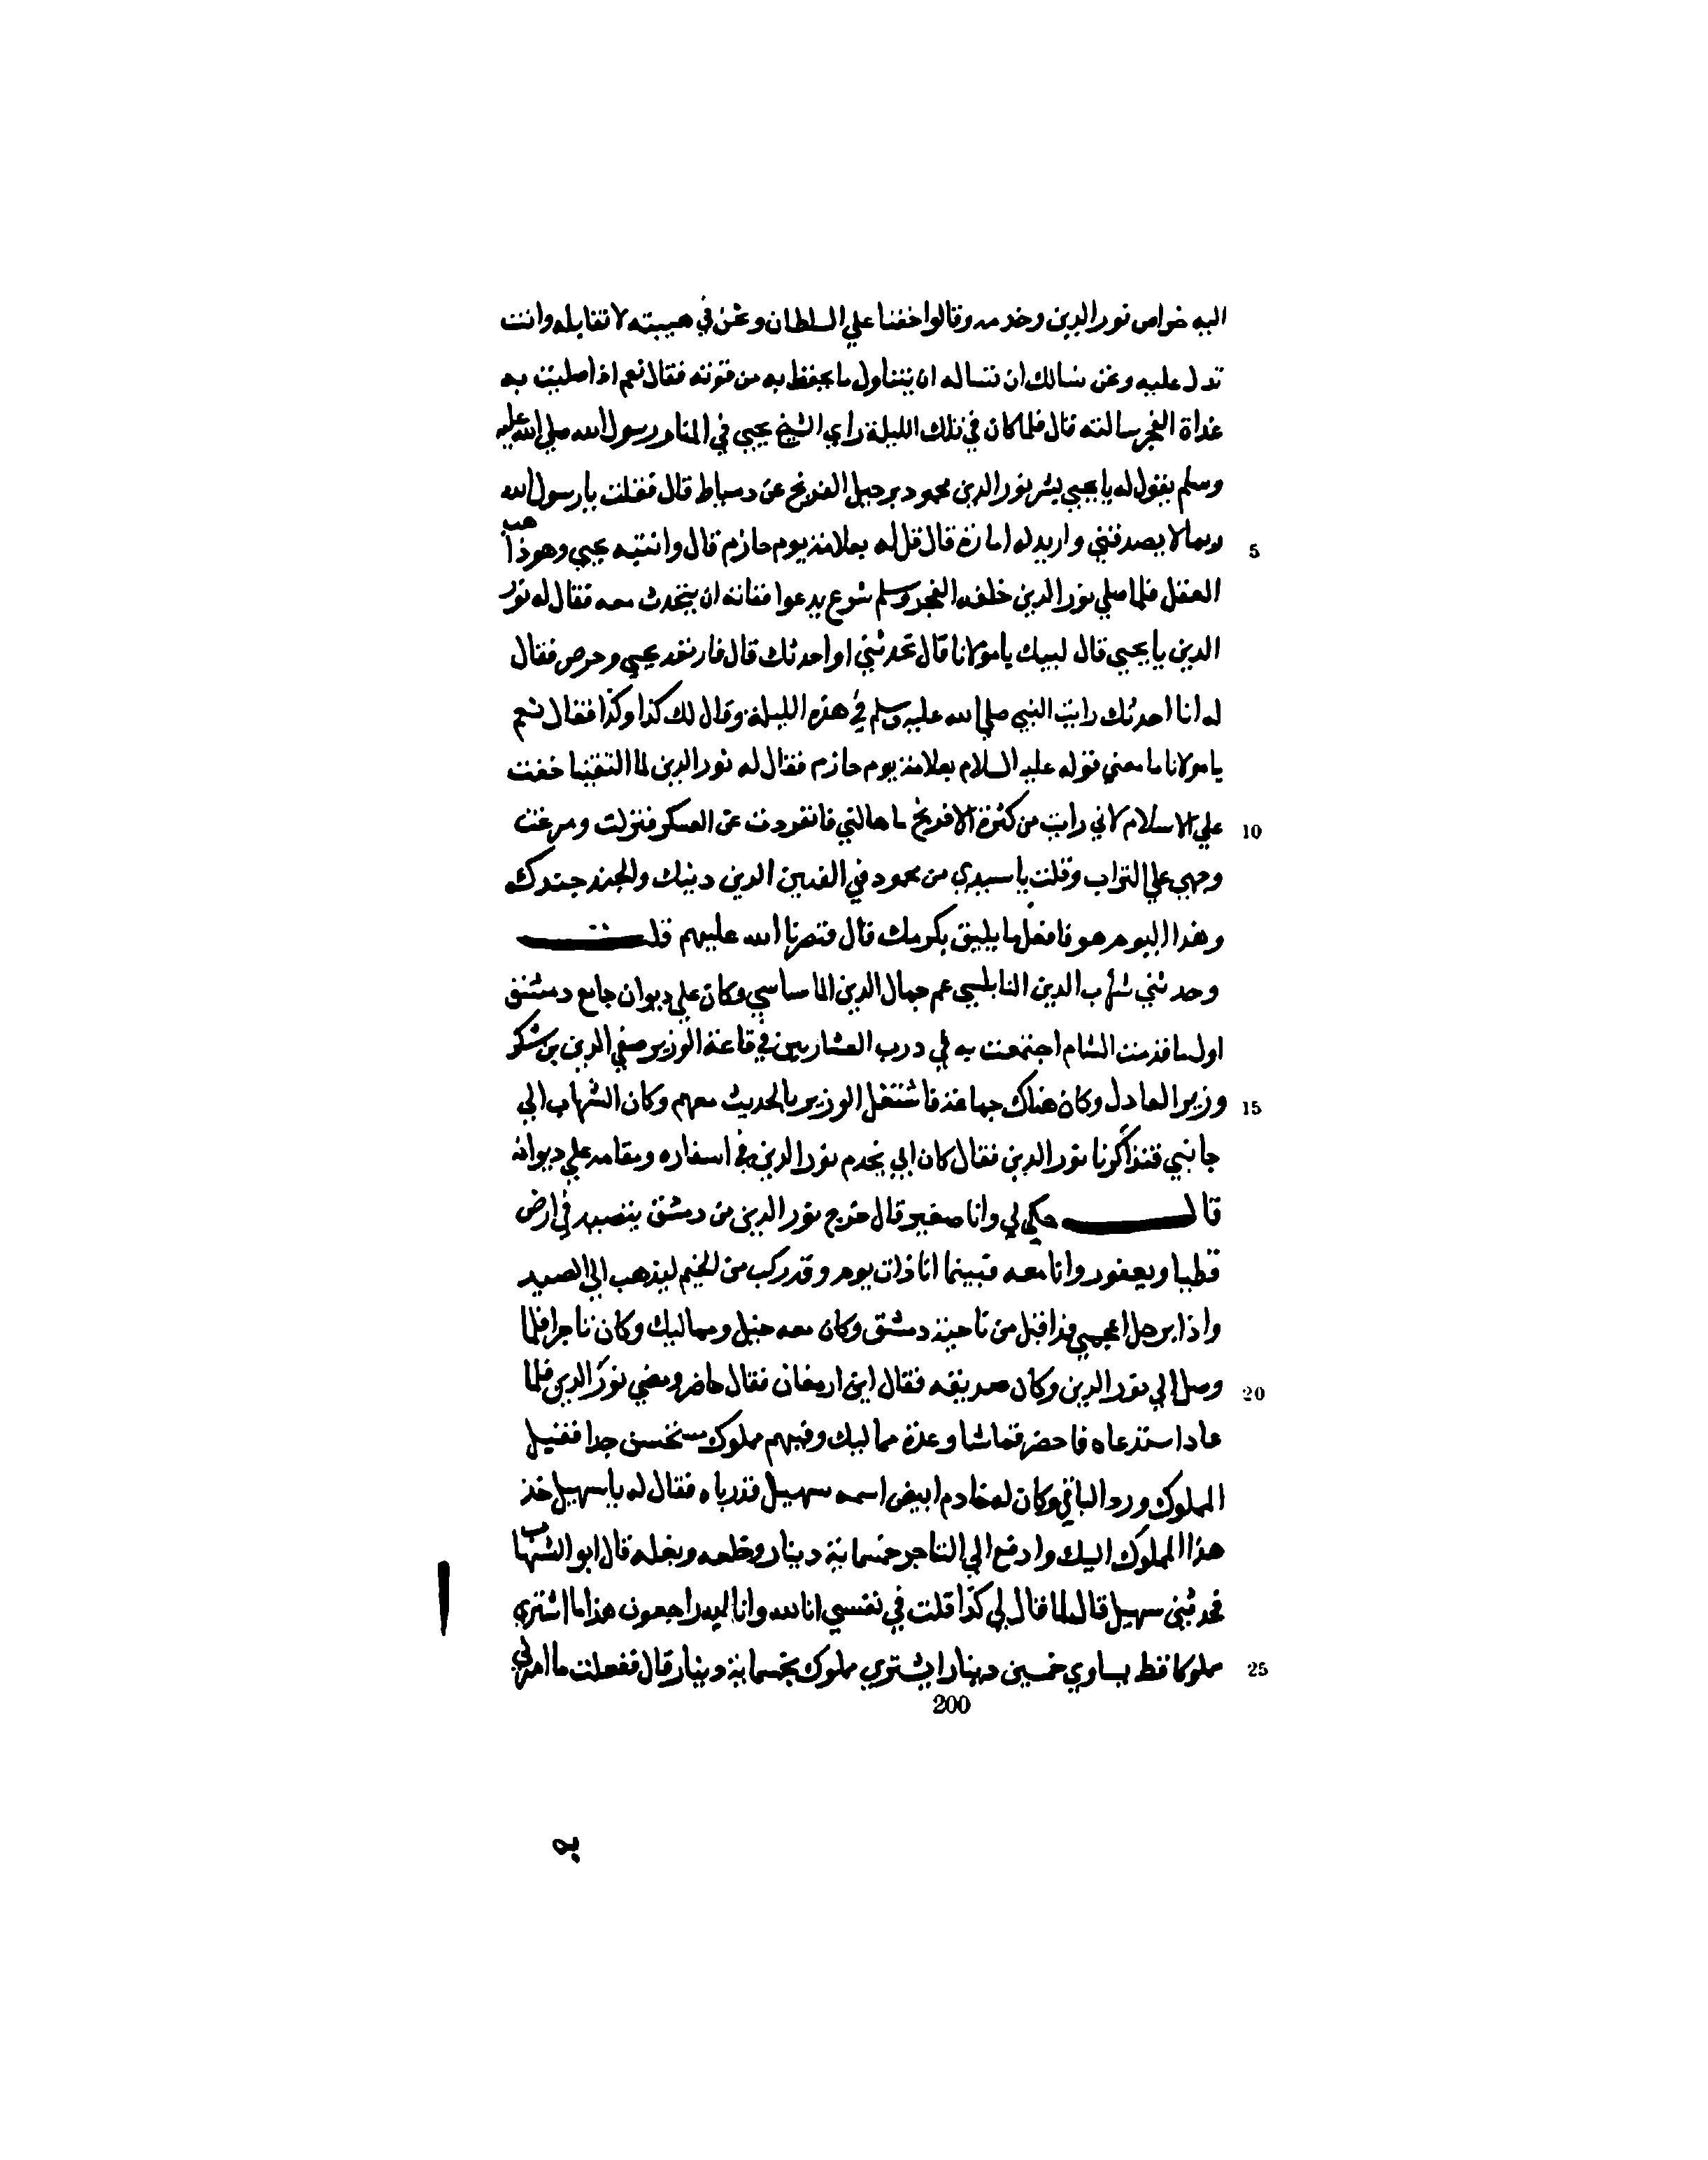 اليه خواص نور الدين وخدمه وقالوا خفنا علي السلطان ونحن في هيبته لا نقابله وانت
تدل عليه ونحن نسالك ان تساله ان يتناول ما يحفظ به من قوته فقال نعم اذا صليت به
غداة الفجر سالته قال فلما كان في تلك الليلة راي الشيخ يحيي في المنام رسول الله صلي الله عليه
وسلم يقول له يا يحيي بشر نور الدين محمود برحيل الفرنج عن دمياط قال فقلت يا رسول الله
ربما لا يصدقني واريد له امارة قال قل له بعلامة يوم حازم قال وانتبه يحيي وهو ذاهب
العقل فلما صلي نور الدين خلفه الفجر وسلم شرع يدعوا ففاته ان يتحدث معه فقال له نور
الدين يا يحيي قال لبيك يا مولانا قال تحدثني او احدثك قال فارتعد يحيي وخرص فقال
له انا احدثك رايت النبي صلي الله عليه وسلم في هذه الليلة وقال لك كذا وكذا فقال نعم
يا مولانا ما معني قوله عليه السلام بعلامة يوم حازم فقال له نور الدين لما التقينا خفت
علي الاسلام لاني رايت من كثرة الافرنج ما هالني فانفردت عن العسكر فنزلت ومرغت
وجهي علي التراب وقلت يا سيدي من محمود في البين الدين دينك والجند جندك
وهذا اليوم هو فافعل ما يليق بكرمك قال فنصرنا الله عليهم قلت
وحدثني شهاب الدين النابلسي عم جمال الدين الماساسي وكان علي ديوان جامع دمشق
اول ما قدمت الشام اجتمعت به في درب العشاريين في قاعة الوزير صفي الدين بن شكر
وزير العادل وكان هناك جماعة فاشتغل الوزير بالحديث معهم وكان الشهاب الي
جانبي فتذاكرنا نور الدين فقال كان ابي يخدم نور الدين في اسفاره ومقامه علي ديوانه
قال حكي لي وانا صغير قال خرج نور الدين من دمشق يتصيد في ارض
قطيا ويعفور وانا معه فبينما انا ذات يوم وقد ركب من المخيم ليذهب الي الصيد
واذا برجل اعجمي قد اقبل من ناحية دمشق وكان معه خيل ومماليك وكان تاجرا فلما
وصل الي نور الدين وكان صديقه فقال اين ارمغان فقال حاضر ومضي نور الدين فلما
عاد استدعاه فاحضر قماشا وعدة مماليك وفيهم مملوك مستحسن جدا فقبل
المملوك ورد الباقي وكان له خادم ابيض اسمه سهيل قد رباه فقال له يا سهيل خذ
هذا المملوك اليك وادفع الي التاجر خمسماية دينار وخلعه وبغله قال ابو الشهاب
فحدثني سهيل قال لما قال لي كذا قلت في نفسي انا لله وانا اليه راجعون هذا ما اشتري
مملوكا قط يساوي خمسين دينارا يشتري مملوك بخمسماية دينار قال ففعلت ما امرني
5
10
15
20
25
200
به